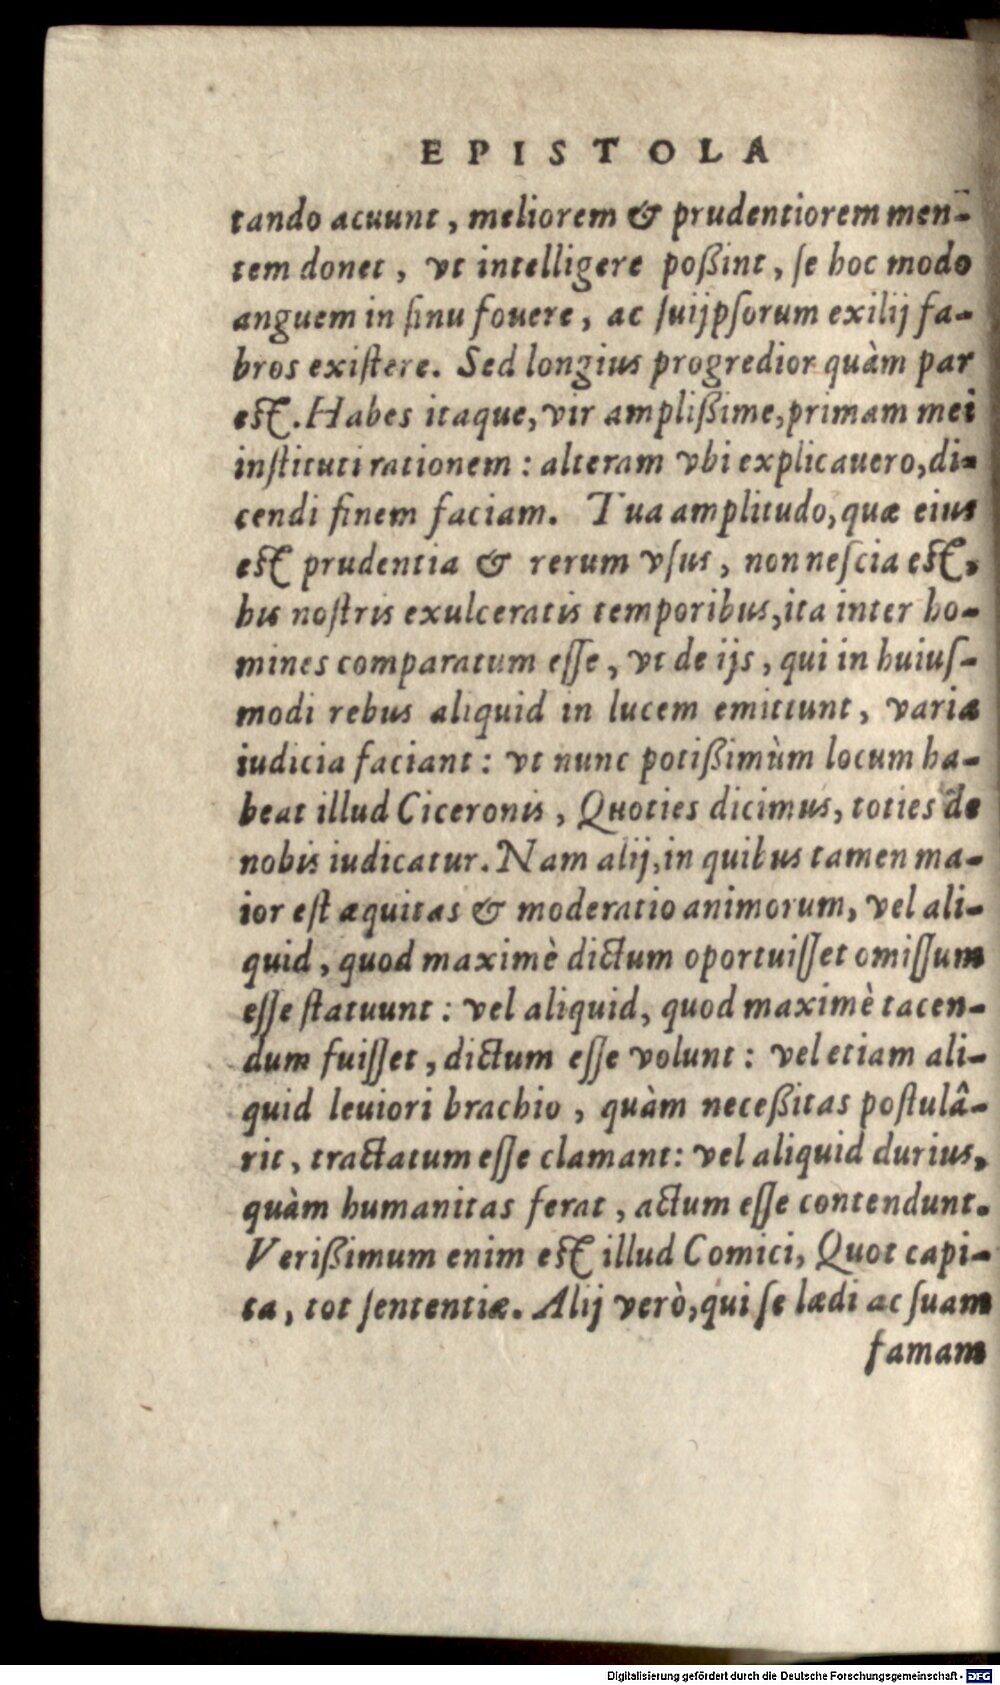 EPISTOLA
tando acuunt, meliorem & prudentiorem men-
tem donet, vt intelligere poßint, ſe hoc modo
anguem in ſinu fouere, ac ſuijpſorum exilij fa-
bros exiſtere. Sed longius progredior quàm par
eſt. Habes itaque, vir amplißime, primam mei
inſtituti rationem: alteram vbi explicauero, di-
cendi finem faciam. Tua amplitudo, quæ eius
eſt prudentia & rerum vſus, non neſcia eſt,
his noſtris exulceratis temporibus, ita inter ho-
mines comparatum eſſe, vt de ijs, qui in huiuſ-
modi rebus aliquid in lucem emittunt, varia
iudicia faciant: vt nunc potißimùm locum ha-
beat illud Ciceronis, Quoties dicimus, toties de
nobis iudicatur. Nam alij, in quibus tamen ma-
ior eſt æquitas & moderatio animorum, vel ali-
quid, quod maximè dictum oportuiſſet omiſſum
eſſe ſtatuunt: vel aliquid, quod maximè tacen-
dum fuiſſet, dictum eſſe volunt: vel etiam ali-
quid leuiori brachio, quàm neceßitas poſtulâ-
rit, tractatum eſſe clamant: vel aliquid durius,
quàm humanitas ferat, actum eſſe contendunt.
Verißimum enim eſt illud Comici, Quot capi-
ta, tot ſententiæ. Alij verò, qui ſe lædi ac ſuam
famam
Digitalisierung gefördert durch die Deutsche Forschungsgemeinschaft - DFG